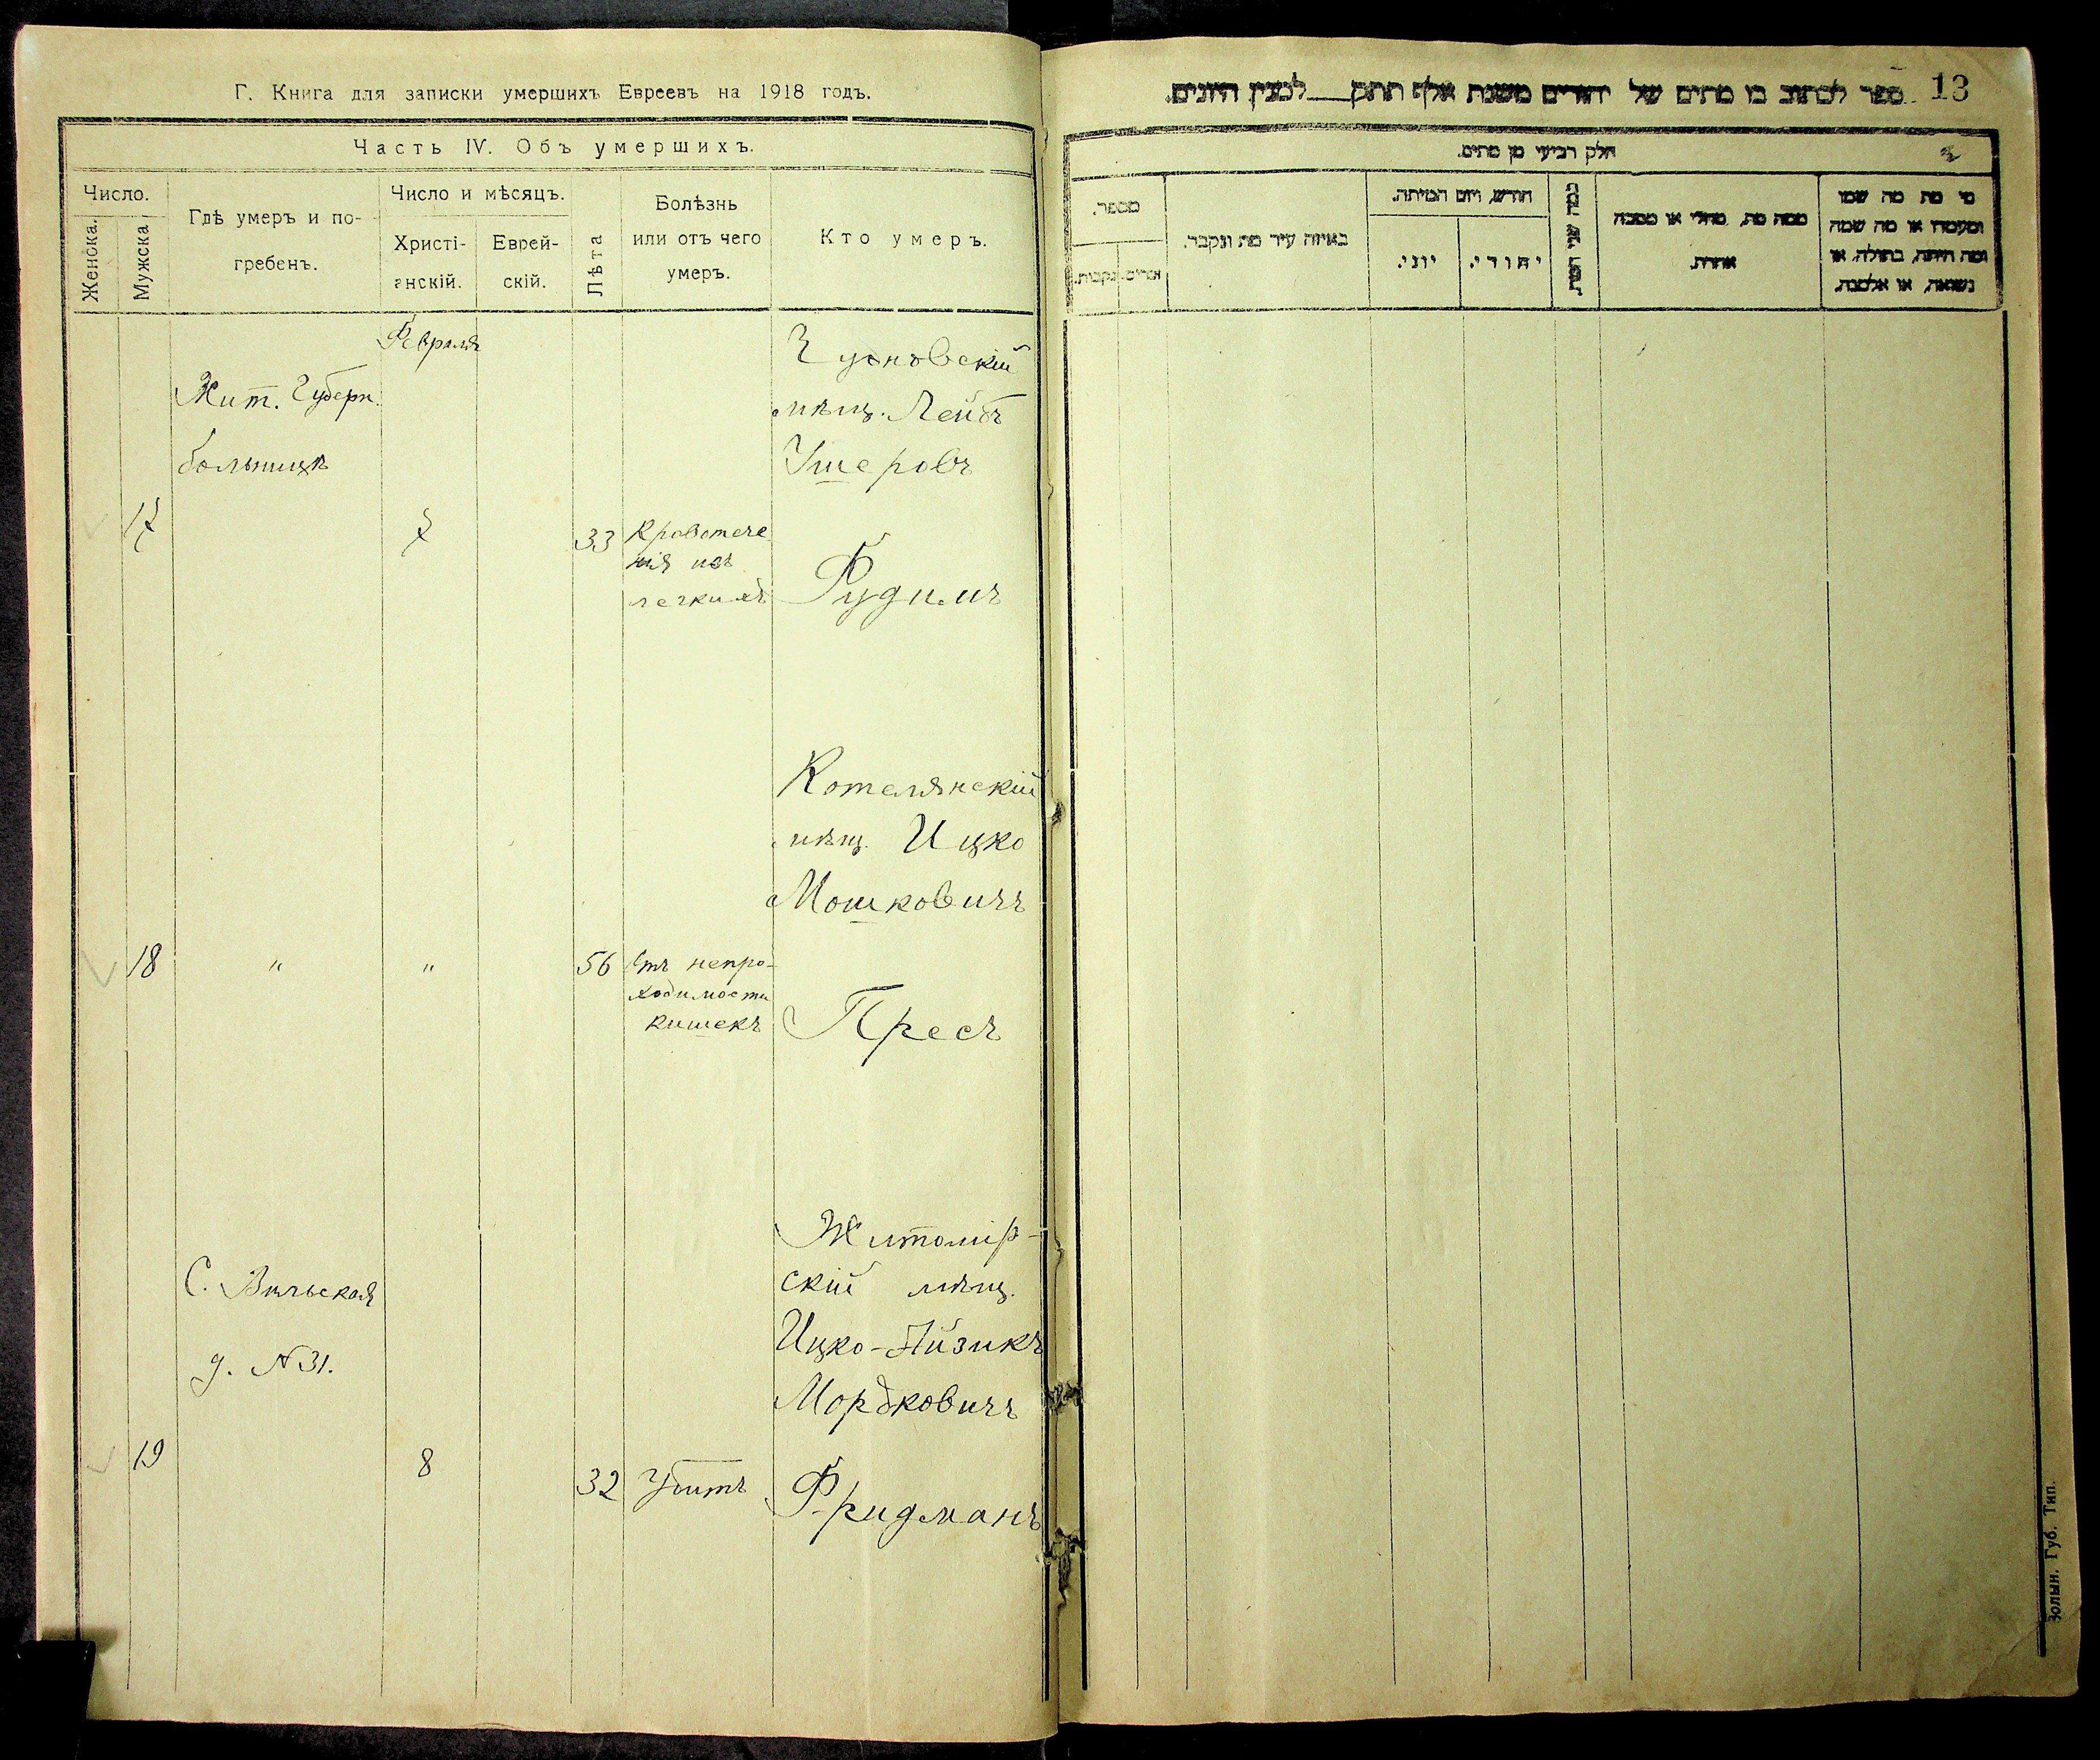 Г. Книга для записки умершихъ Евреевъ на 1918 годъ.
Часть IV. Объ умершихъ.
Число.
Женска.
Мужска
Гдѣ умеръ и по-
гребенъ.
Число и мѣсяцъ.
Христі-
анскій.
Еврей-
скій.
Лѣта
Болѣзнь
или отъ чего
умеръ.
Кто умеръ.
Февраля
Жит. Губерн.
больницѣ
17
7
33
Кровотече
нія изъ
легкихъ
Чудновскій
мѣщ. Лейбъ
Ушеровъ
Фудимъ
18
"
"
56
Отъ непро-
ходимости
кишекъ
Котелянскій
мѣщ. Ицко
Мошковичъ
Пресъ
С. Вильская
д. N 31.
19
8
32
Убитъ
Житомір-
скій мѣщ.
Ицко-Айзикъ
Мордковичъ
Фридманъ
ספר לכתוב בו מתים של יהודים משנת אלף תתק לכנין היונים.
13
חלק רביעי מן מתים.
מספר.
זכרים.
נקבות.
באיזה עיר מת ונקבר.
חודש, ויום המיתה.
יוני.
יהודי.
כמה שני המת.
ממה מת, מחלי או מסבה
אחרת.
מי מת מה שמו
ומעמדו או מה שמה
ומה היתה, בתולה, או
נשואה, או אלמנה.
Волын. Губ. Тип.